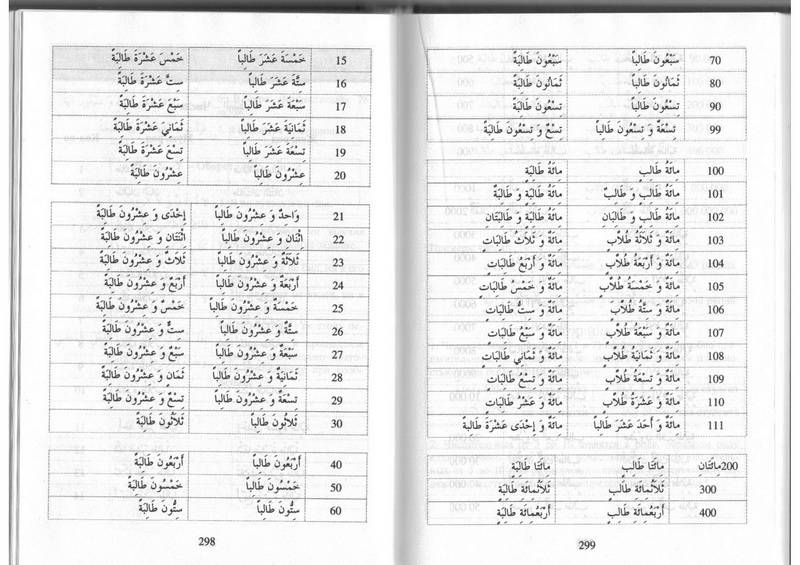 15 خَمْسَةَ عَشَرَ طَالِباً خَمْسَ عَشْرَةَ طَالِبَةً
16 سِتَّةَ عَشَرَ طَالِباً سِتَّ عَشْرَةَ طَالِبَةً
17 سَبْعَةَ عَشَرَ طَالِباً سَبْعَ عَشْرَةَ طَالِبَةً
18 ثَمَانِيَةَ عَشَرَ طَالِباً ثَمَانِيَ عَشْرَةَ طَالِبَةً
19 تِسْعَةَ عَشَرَ طَالِباً تِسْعَ عَشْرَةَ طَالِبَةً
20 عِشْرُونَ طَالِباً عِشْرُونَ طَالِبَةً
21 وَاحِدٌ وَ عِشْرُونَ طَالِباً إِحْدَى وَ عِشْرُونَ طَالِبَةً
22 اثْنَانِ وَ عِشْرُونَ طَالِباً اثْنَتَانِ وَ عِشْرُونَ طَالِبَةً
23 ثَلَاثَةٌ وَ عِشْرُونَ طَالِباً ثَلَاثٌ وَ عِشْرُونَ طَالِبَةً
24 أَرْبَعَةٌ وَ عِشْرُونَ طَالِباً أَرْبَعٌ وَ عِشْرُونَ طَالِبَةً
25 خَمْسَةٌ وَ عِشْرُونَ طَالِباً خَمْسٌ وَ عِشْرُونَ طَالِبَةً
26 سِتَّةٌ وَ عِشْرُونَ طَالِباً سِتٌّ وَ عِشْرُونَ طَالِبَةً
27 سَبْعَةٌ وَ عِشْرُونَ طَالِباً سَبْعٌ وَ عِشْرُونَ طَالِبَةً
28 ثَمَانِيَةٌ وَ عِشْرُونَ طَالِباً ثَمَانٍ وَ عِشْرُونَ طَالِبَةً
29 تِسْعَةٌ وَ عِشْرُونَ طَالِباً تِسْعٌ وَ عِشْرُونَ طَالِبَةً
30 ثَلَاثُونَ طَالِباً ثَلَاثُونَ طَالِبَةً
40 أَرْبَعُونَ طَالِباً أَرْبَعُونَ طَالِبَةً
50 خَمْسُونَ طَالِباً خَمْسُونَ طَالِبَةً
60 سِتُّونَ طَالِباً سِتُّونَ طَالِبَةً
298
70 سَبْعُونَ طَالِباً سَبْعُونَ طَالِبَةً
80 ثَمَانُونَ طَالِباً ثَمَانُونَ طَالِبَةً
90 تِسْعُونَ طَالِباً تِسْعُونَ طَالِبَةً
99 تِسْعَةٌ وَ تِسْعُونَ طَالِباً تِسْعٌ وَ تِسْعُونَ طَالِبَةً
100 مِائَةُ طَالِبٍ مِائَةُ طَالِبَةٍ
101 مِائَةُ طَالِبٍ وَ طَالِبٌ مِائَةُ طَالِبَةٍ وَ طَالِبَةٌ
102 مِائَةُ طَالِبٍ وَ طَالِبَانِ مِائَةُ طَالِبَةٍ وَ طَالِبَتَانِ
103 مِائَةٌ وَ ثَلَاثَةُ طُلَّابٍ مِائَةٌ وَ ثَلَاثُ طَالِبَاتٍ
104 مِائَةٌ وَ أَرْبَعَةُ طُلَّابٍ مِائَةٌ وَ أَرْبَعُ طَالِبَاتٍ
105 مِائَةٌ وَ خَمْسَةُ طُلَّابٍ مِائَةٌ وَ خَمْسُ طَالِبَاتٍ
106 مِائَةٌ وَ سِتَّةُ طُلَّابٍ مِائَةٌ وَ سِتُّ طَالِبَاتٍ
107 مِائَةٌ وَ سَبْعَةُ طُلَّابٍ مِائَةٌ وَ سَبْعُ طَالِبَاتٍ
108 مِائَةٌ وَ ثَمَانِيَةُ طُلَّابٍ مِائَةٌ وَ ثَمَانِي طَالِبَاتٍ
109 مِائَةٌ وَ تِسْعَةُ طُلَّابٍ مِائَةٌ وَ تِسْعُ طَالِبَاتٍ
110 مِائَةٌ وَ عَشَرَةُ طُلَّابٍ مِائَةٌ وَ عَشْرُ طَالِبَاتٍ
111 مِائَةٌ وَ أَحَدَ عَشَرَ طَالِباً مِائَةٌ وَ إِحْدَى عَشْرَةَ طَالِبَةً
200مِائَتَانِ مِائَتَا طَالِبٍ مِائَتَا طَالِبَةٍ
300 ثَلَاثُمِائَةِ طَالِبٍ ثَلَاثُمِائَةِ طَالِبَةٍ
400 أَرْبَعُمِائَةِ طَالِبٍ أَرْبَعُمِائَةِ طَالِبَةٍ
299